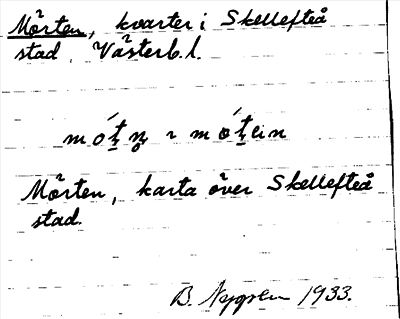 Mörten, kvarter i Skellefteå
stad, Västerb.l.
mó̱ṯn̥ ~ mó̱ṯein
Mörten, karta över Skellefteå
stad.
B. Nygren 1933.